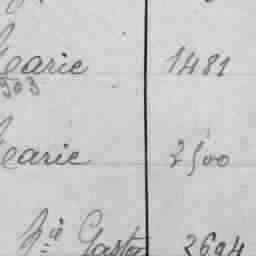 Marie 1481
903
Marie 2500
Gaston 2694